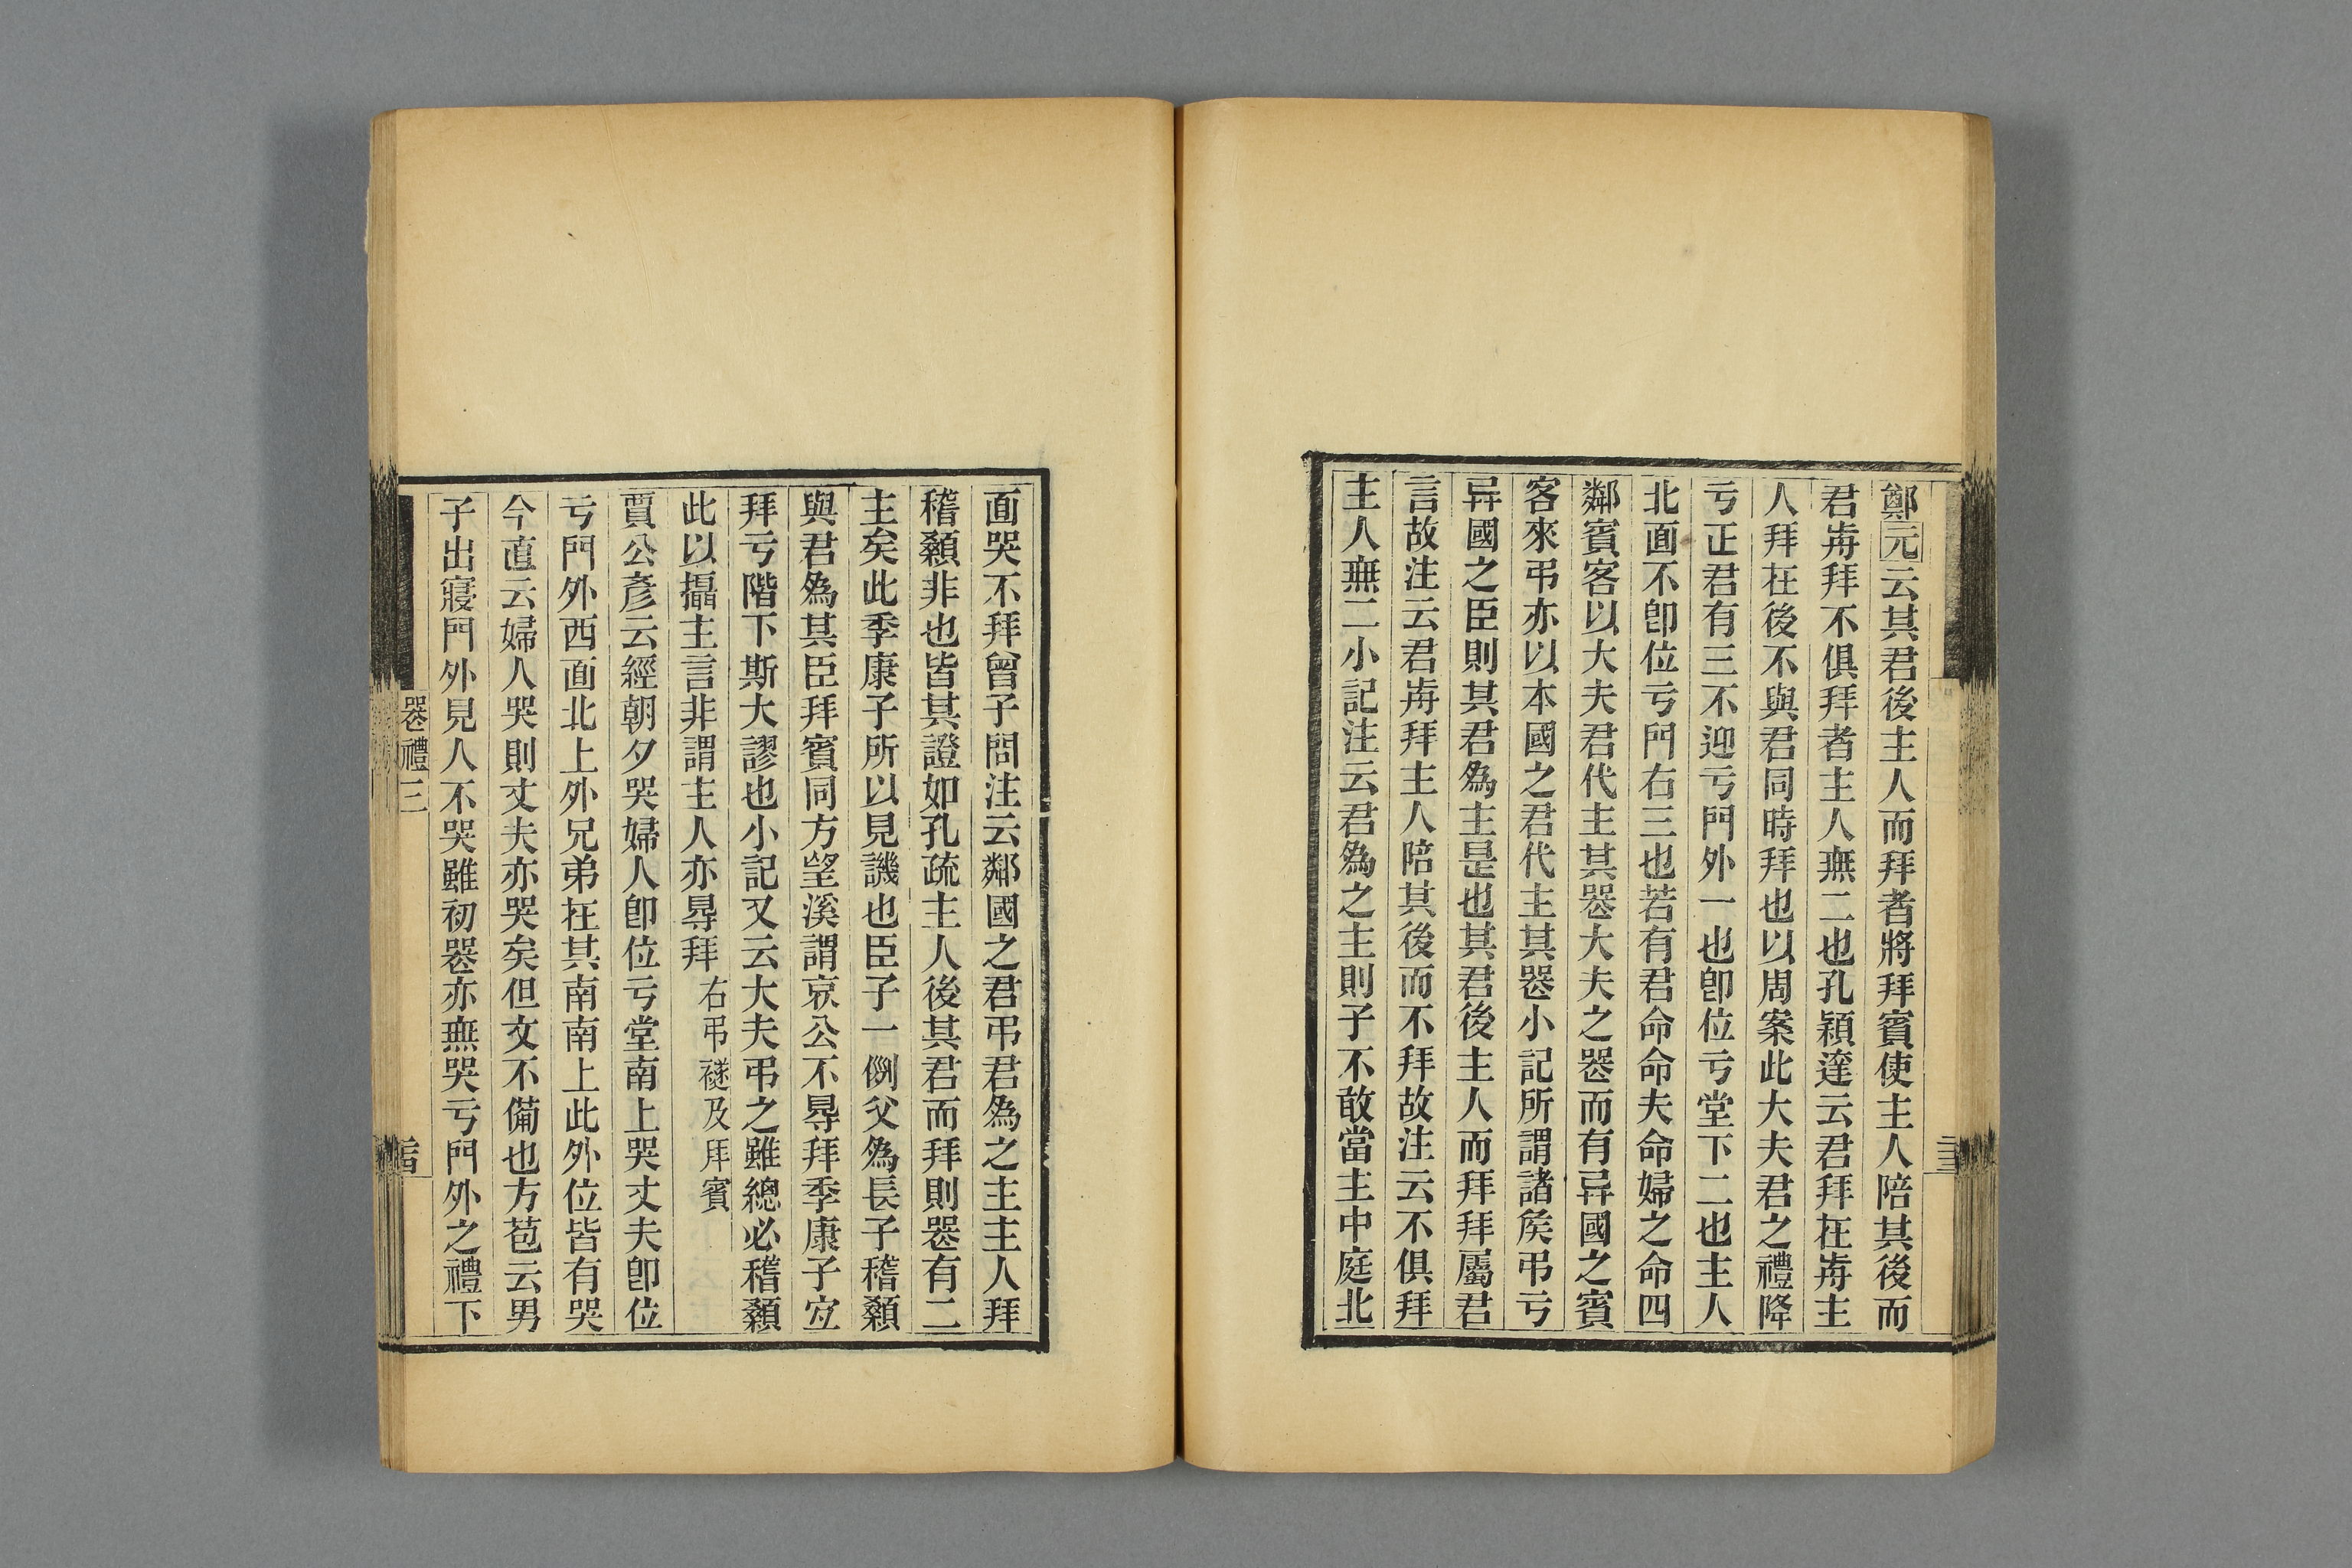 鄭元云其君後主人而拜者將拜賓使主人陪其後而
君歬拜不俱拜者主人無二也孔穎達云君拜在歬主
人拜在後不與君同時拜也以周案此大夫君之禮降
亏正君有三不迎亏門外一也卽位亏堂下二也主人
北面不卽位亏門右三也若有君命命夫命婦之命四
鄰賓客以大夫君代主其喪大夫之喪而有异國之賓
客來弔亦以本國之君代主其喪小記所謂諸矦弔亏
异國之臣則其君爲主是也其君後主人而拜拜屬君
言故注云君歬拜主人陪其後而不拜故注云不俱拜
主人無二小記注云君爲之主則子不敢當主中庭北
面哭不拜曾子問注云鄰國之君弔君爲之主主人拜
稽顙非也皆其證如孔疏主人後其君而拜則喪有二
主矣此季康子所以見譏也臣子一例父爲長子稽顙
與君爲其臣拜賓同方望溪謂哀公不㝵拜季康子宜
拜亏階下斯大謬也小記又云大夫弔之雖緦必稽顙
此以攝主言非謂主人亦㝵拜 右弔襚及拜賓
賈公彥云經朝夕哭婦人卽位亏堂南上哭丈夫卽位
亏門外西面北上外兄弟在其南南上此外位皆有哭
今直云婦人哭則丈夫亦哭矣但文不備也方苞云男
子出寢門外見人不哭雖初喪亦無哭亏門外之禮下
喪禮三